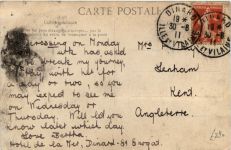 CARTE POSTALE
DINARD
30-8
11
ILLE-ET-VILAINE
Crossing on Monday
has asked
break my journey
stay with her for
a day or two, so you
may expect to see me
on Wednesday or
Thursday. Will let you
know later which day.
Love Bertha
Hotel de la Mer, Dinard-St Enogat.
Mrs
Lenham
Kent.
Angleterre.